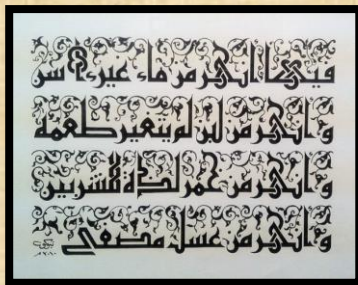 فيها انهر من ماء غير ءاسن
وانهر من لبن لم يتغير طعمه
وانهر من خمر لذة للشربين
وانهر من عسل مصفى